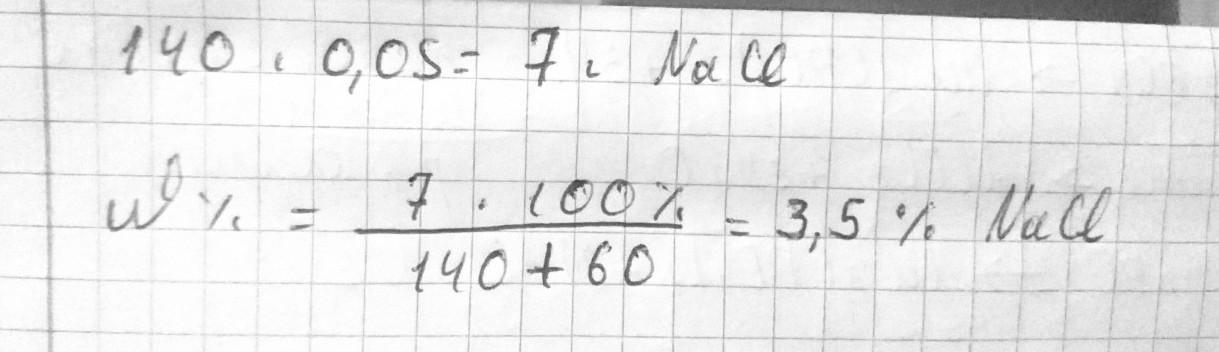 140 · 0,05 = 7 г NaCl
w % = 7 · 100% / 140 + 60 = 3,5 % NaCl